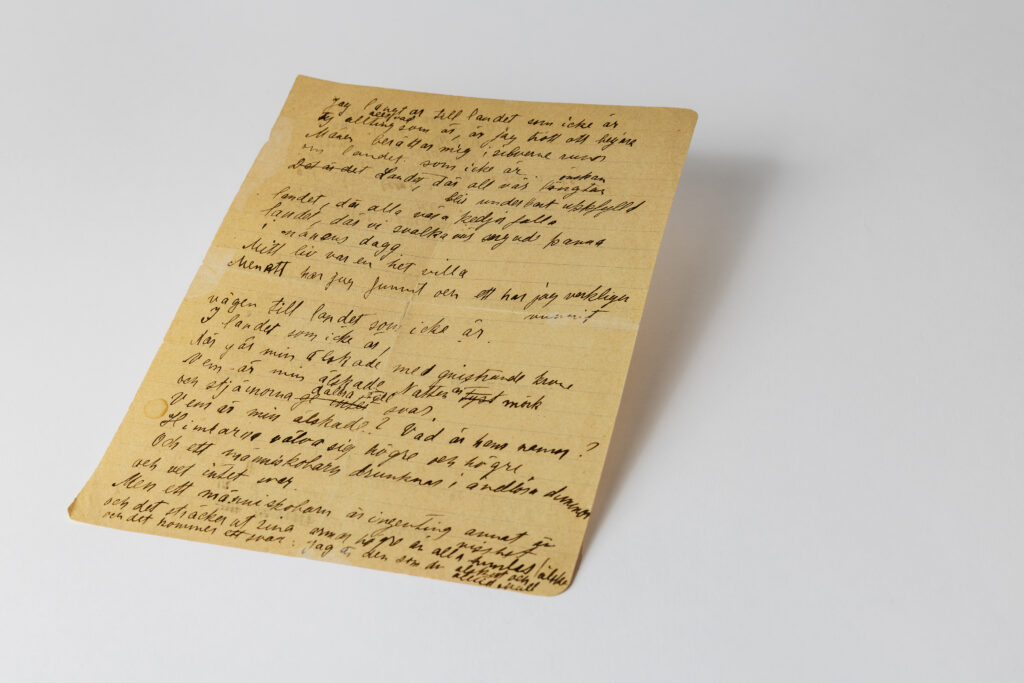 Jag längtar till landet som icke är
ty allting som är, är jag trött att begära
Månen berättar mig i silverne runor
om landet som icke är
önskan
Det är det Landet, där all vår längtan
blir underbart uppfylld
landet, där alla våra kedjor falla
landet, där vi svalka vår panna
i månens dagg
Mitt liv var en het villa
Men ett har jag funnit och ett har jag verkligen
vunnit
vägen till landet som icke är.
I landet som icke är,
där går min älskade med gnistrande krona
Vem är min älskade. Natten är tyst mörk
och stjärnorna dallra svar
Vem är min älskade? Vad är hans namn?
Himlarna välva sig högre och högre
Och ett människobarn drunknar i ändlösa dimmor
och vet intet svar
Men ett människobarn är ingenting annat än
visshet
och det sträcker ut sina armar högre än alla himlar
och det kommer ett svar: Jag är den som du älskar och
alltid skall